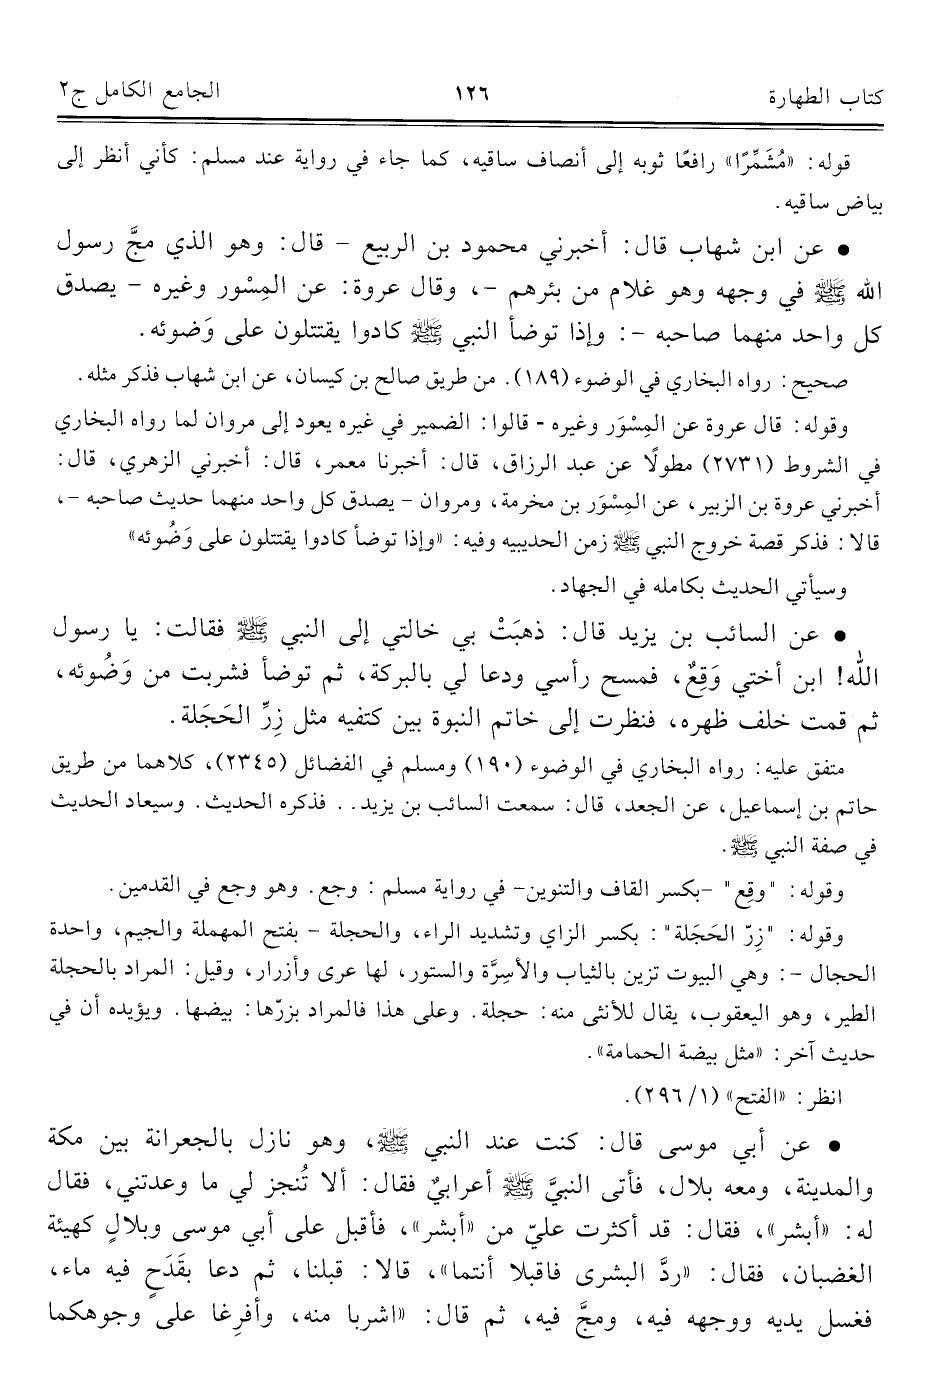 كتاب الطهارة ١٢٦ الجامع الكامل ج٢
قوله: «مُشَمِّرًا» رافعًا ثوبه إلى أنصاف ساقيه، كما جاء في رواية عند مسلم: كأني أنظر إلى
بياض ساقيه.
• عن ابن شهاب قال: أخبرني محمود بن الربيع - قال: وهو الذي مجَّ رسول
الله ﷺ في وجهه وهو غلام من بئرهم -، وقال عروة: عن المِسْور وغيره - يصدق
كل واحد منهما صاحبه -: وإذا توضأ النبي ﷺ كادوا يقتتلون على وَضوئه.
صحيح: رواه البخاري في الوضوء (١٨٩). من طريق صالح بن كيسان، عن ابن شهاب فذكر مثله.
وقوله: قال عروة عن المِسْوَر وغيره - قالوا: الضمير في غيره يعود إلى مروان لما رواه البخاري
في الشروط (٢٧٣١) مطولًا عن عبد الرزاق، قال: أخبرنا معمر، قال: أخبرني الزهري، قال:
أخبرني عروة بن الزبير، عن المِسْوَر بن مخرمة، ومروان - يصدق كل واحد منهما حديث صاحبه -،
قالا: فذكر قصة خروج النبي ﷺ زمن الحديبيه وفيه: «وإذا توضأ كادوا يقتتلون على وَضُوئه»
وسيأتي الحديث بكامله في الجهاد.
• عن السائب بن يزيد قال: ذهبَتْ بي خالتي إلى النبي ﷺ فقالت: يا رسول
الله! ابن أختي وَقِعٌ، فمسح رأسي ودعا لي بالبركة، ثم توضأ فشربت من وَضُوئه،
ثم قمت خلف ظهره، فنظرت إلى خاتم النبوة بين كتفيه مثل زِرِّ الحَجَلة.
متفق عليه: رواه البخاري في الوضوء (١٩٠) ومسلم في الفضائل (٢٣٤٥)، كلاهما من طريق
حاتم بن إسماعيل، عن الجعد، قال: سمعت السائب بن يزيد.. فذكره الحديث. وسيعاد الحديث
في صفة النبي ﷺ.
وقوله: "وقِع" -بكسر القاف والتنوين- في رواية مسلم: وجع. وهو وجع في القدمين.
وقوله: "زِرّ الحَجَلة": بكسر الزاي وتشديد الراء، والحجلة - بفتح المهملة والجيم، واحدة
الحجال -: وهي البيوت تزين بالثياب والأسِرَّة والستور، لها عرى وأزرار، وقيل: المراد بالحجلة
الطير، وهو اليعقوب، يقال للأنثى منه: حجلة. وعلى هذا فالمراد بزرّها: بيضها. ويؤيده أن في
حديث آخر: «مثل بيضة الحمامة».
انظر: «الفتح» (١/ ٢٩٦).
• عن أبي موسى قال: كنت عند النبي ﷺ، وهو نازل بالجعرانة بين مكة
والمدينة، ومعه بلال، فأتى النبيَّ ﷺ أعرابيٌ فقال: ألا تُنجز لي ما وعدتني، فقال
له: «أبشر»، فقال: قد أكثرت عليّ من «أبشر»، فأقبل على أبي موسى وبلالٍ كهيئة
الغضبان، فقال: «ردَّ البشرى فاقبلا أنتما»، قالا: قبلنا، ثم دعا بقَدَحٍ فيه ماء،
فغسل يديه ووجهه فيه، ومجَّ فيه، ثم قال: «اشربا منه، وأفرِغا على وجوهكما